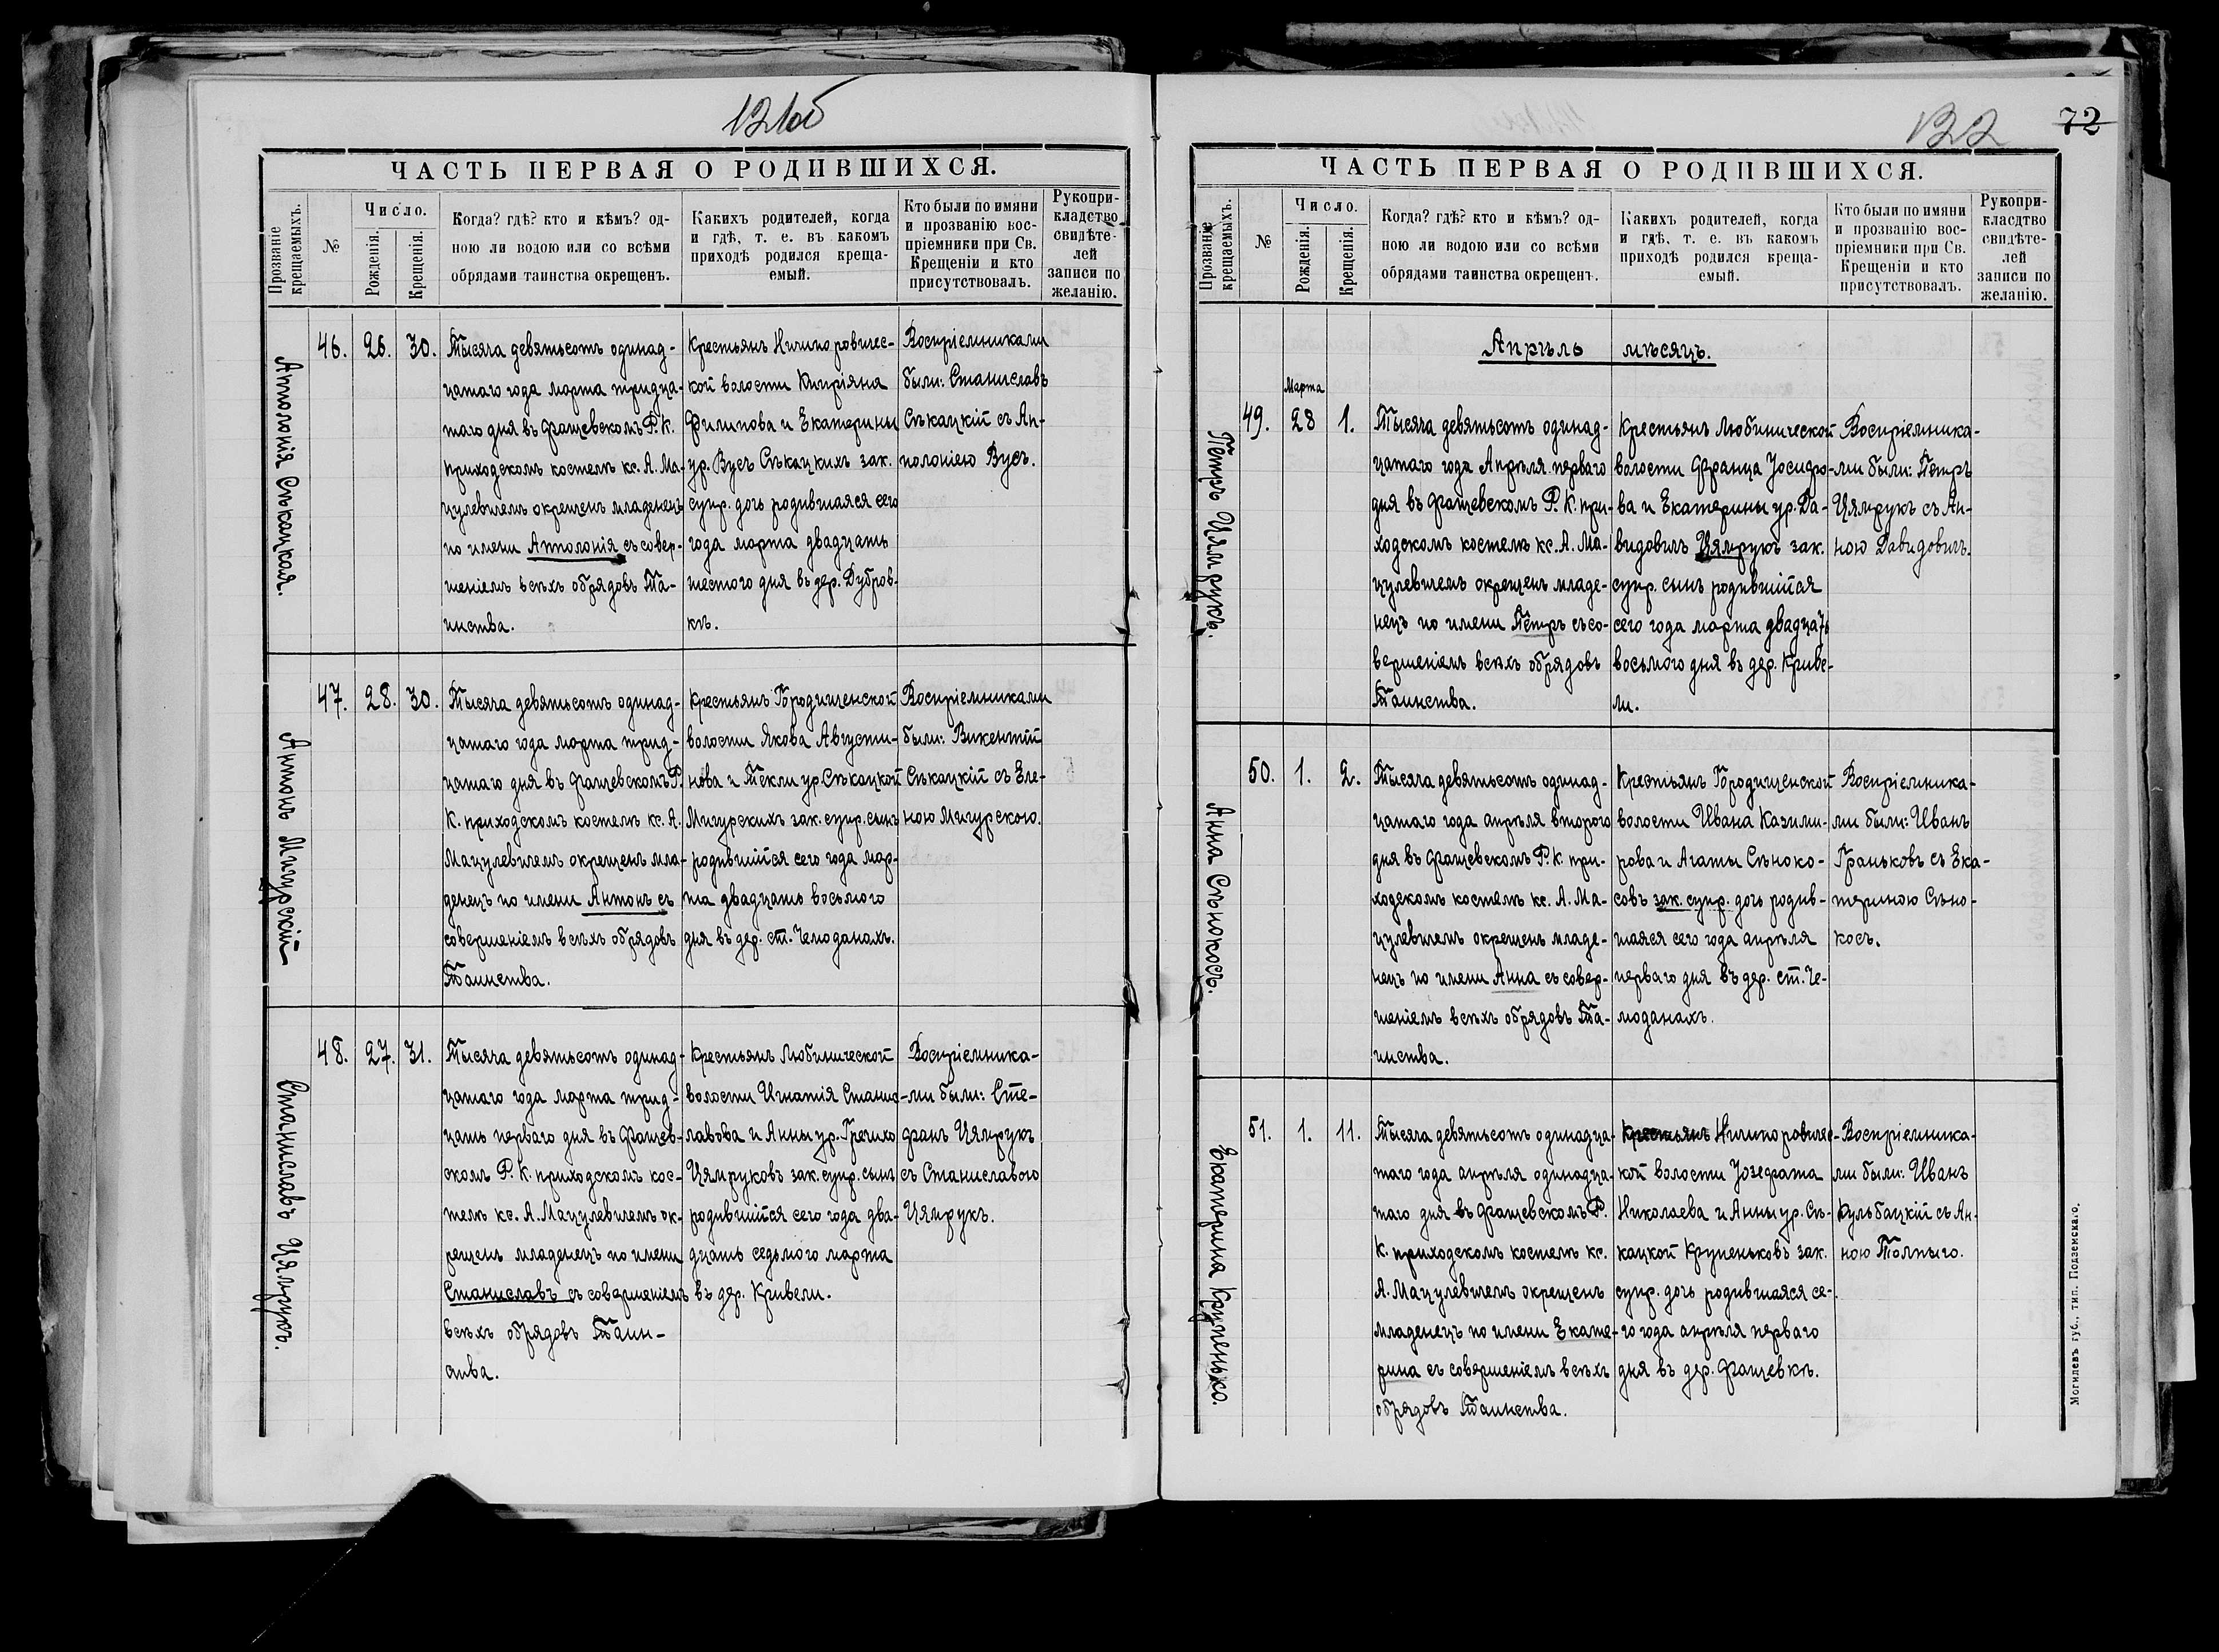 121об
ЧАСТЬ ПЕРВАЯ О РОДИВШИХСЯ.
Прозваніе крещаемыхъ.
№
Число.
Рожденія.
Крещенія.
Когда? гдѣ? кто и кѣмъ? од-
ною ли водою или со всѣми
обрядами таинства окрещенъ.
Какихъ родителей, когда
и гдѣ, т. е. въ какомъ
приходѣ родился креща-
емый.
Кто были по имяни
и прозванію вос-
пріемники при Св.
Крещеніи и кто
присутствовалъ.
Рукопри-
кладство
свидѣте-
лей
записи по
желанію.
Апполонія Сѣкацкая.
46.
26.
30.
Тысяча девятьсотъ одинад-
цатаго года марта тридца-
таго дня въ Фащевскомъ Р. К.
приходскомъ костелѣ кс. А. Ма-
цулевичемъ окрещенъ младенецъ
по имени Апполонія съ совер-
шеніемъ всѣхъ обрядовъ Та-
инства.
Крестьянъ Ничипоровичес-
кой волости Кипріяна
Филипова и Екатерины
ур. Вусъ Сѣкацкихъ зак.
супр. дочь родившаяся сего
года марта двадцать
шестого дня въ дер. Дубров-
кѣ.
Воспріемниками
были: Станиславъ
Сѣкацкій съ Ап-
полоніею Вусъ.
Антонъ Мигурскій
47.
28.
30.
Тысяча девятьсотъ одинад-
цатаго года марта трид-
цатаго дня въ Фащевскомъ Р.
К. приходскомъ костелѣ кс. А.
Мацулевичемъ окрещенъ мла-
денецъ по имени Антонъ съ
совершеніемъ всѣхъ обрядовъ
Таинства.
Крестьянъ Городищенской
волости Якова Августи-
нова и Теклі ур. Сѣкацкой
Мигурскихъ зак. супр. сынъ
родившійся сего года мар-
та двадцать восьмого
дня въ дер. ст. Чемоданахъ.
Воспріемниками
были: Викентій
Сѣкацкій съ Еле-
ною Мигурскою.
Станиславъ Цямрукъ.
48.
27.
31.
Тысяча девятьсотъ одинад-
цатаго года марта трид-
цать перваго дня въ Фащев-
скомъ Р. К. приходскомъ кос-
телѣ кс. А. Мацулевичемъ ок-
рещенъ младенецъ по имени
Станиславъ съ совершеніемъ
всѣхъ обрядовъ Таин-
ства.
Крестьянъ Любинической
волости Игнатія Станис-
лавова и Анны ур. Грехихо
Цямруковъ зак. супр. сынъ
родившійся сего года два-
дцать седьмого марта
въ дер. Кривели.
Воспріемника-
ми были: Сте-
фанъ Цямрукъ
съ Станиславою
Цямрукъ.
122
72
ЧАСТЬ ПЕРВАЯ О РОДИВШИХСЯ.
Прозваніе крещаемыхъ.
№
Число.
Рожденія.
Крещенія.
Когда? гдѣ? кто и кѣмъ? од-
ною ли водою или со всѣми
обрядами таинства окрещенъ.
Какихъ родителей, когда
и гдѣ, т. е. въ какомъ
приходѣ родился креща-
емый.
Кто были по имяни
и прозванію вос-
пріемники при Св.
Крещеніи и кто
присутствовалъ.
Рукопри-
класдтво
свидѣте-
лей
записи по
желанію.
Апрѣль мѣсяцъ.
Петръ Цямрукъ.
49.
Марта
28
1.
Тысяча девятьсотъ одинад-
цатаго года Апрѣля перваго
дня въ Фащевскомъ Р. К. при-
ходскомъ костелѣ кс. А. Ма-
цулевичемъ окрещенъ младе-
нецъ по имени Петръ съ со-
вершеніемъ всѣхъ обрядовъ
Таинства.
Крестьянъ Любинической
волости Франца Іосифо-
ва и Екатерины ур. Да-
видовичъ Цямрукъ зак.
супр. сынъ родившійся
сего года марта двадцать
восьмого дня въ дер. Криве-
ли.
Воспріемника-
ми были: Петръ
Цямрукъ съ Ан-
ною Давидовичъ.
Анна Сѣнокосъ.
50.
1.
2.
Тысяча девятьсотъ одинад-
цатаго года апрѣля второго
дня въ Фащевскомъ Р. К. при-
ходскомъ костелѣ кс. А. Ма-
цулевичемъ окрещенъ младе-
нецъ по имени Анна съ совер-
шеніемъ всѣхъ обрядовъ Та-
инства.
Крестьянъ Городищенской
волости Ивана Казими-
рова и Агаты Сѣноко-
совъ зак. супр. дочь родив-
шаяся сего года апрѣля
перваго дня въ дер. ст. Че-
моданахъ.
Воспріемника-
ми были: Иванъ
Граньковъ съ Ека-
териною Сѣно-
косъ.
Екатерина Крупенько.
51.
1.
11.
Тысяча девятьсотъ одинадца-
таго года апрѣля одинадца-
таго дня въ Фащевскомъ Р.
К. приходскомъ костелѣ кс.
А. Мацулевичемъ окрещенъ
младенецъ по имени Екате-
рина съ совершеніемъ всѣхъ
обрядовъ Таинства.
Крестьянъ Ничипоровичес-
кой волости Іозефата
Николаева и Анны ур. Сѣ-
кацкой Крупеньковъ зак.
супр. дочь родившаяся се-
го года апрѣля перваго
дня въ дер. Фащевкѣ.
Воспріемника-
ми были: Иванъ
Кульбацкій съ Ан-
ною Толпыго.
Могилевъ губ., тип. Подземскаго.